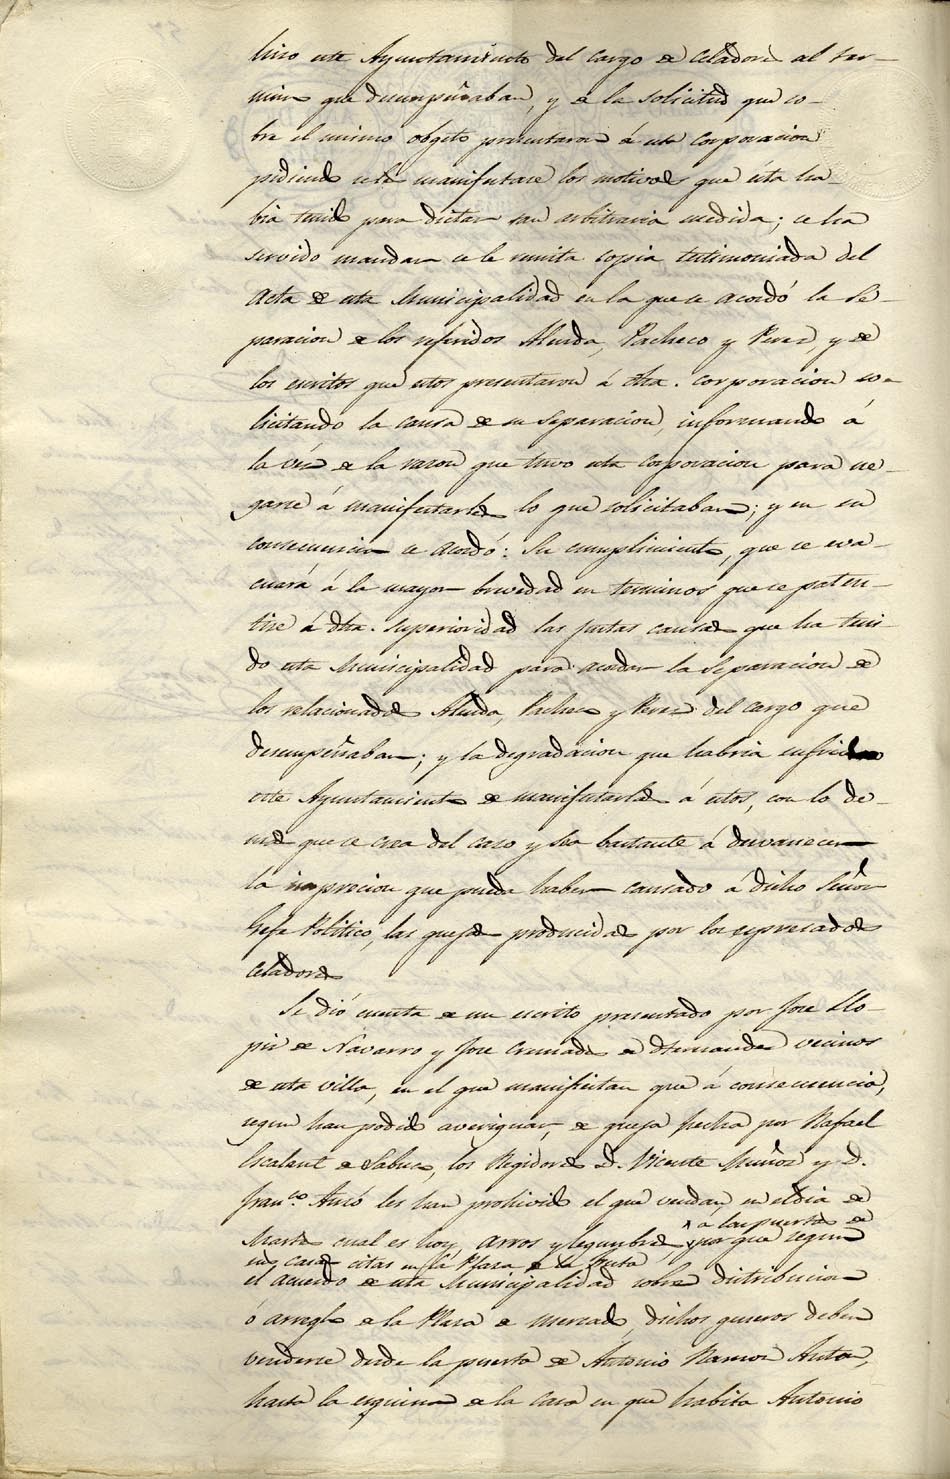 hizo este Ayuntamiento del cargo de Celadores al ter-
mino que desempeñaban, y de la solicitud que so-
bre el mismo objeto presentaron á esta Corporacion
pidiendo se les manifestase los motivos que ésta ha-
bia tenido para dictar tan arbitraria medida; se ha
servido mandar se le remita copia testimoniada del
Acta de esta Municipalidad en la que se acordó la Se-
paracion de los referidos Almida, Pacheco y Perez, y de
los escritos que estos presentaron á dha. Corporacion so-
licitando la causa de su Separacion, informando á
la véz de la razon que tuvo esta Corporacion para ne-
garse á manifestarles lo que solicitaban; y en su
consecuencia se acordó: Su cumplimiento, que se eva-
cuará á la mayor brevedad en terminos que se paten-
tize á dha. Superioridad las justas causas que ha teni-
do esta Municipalidad para acordar la Separacion de
los relacionados Pacheco y Perez del cargo que
desempeñaban; y la degradacion que habria sufrido
este Ayuntamiento de manifestarlas á estos, con lo de-
mas que se crea del caso y sea bastante á desvanecer
la impresion que pueda haber causado á dicho Señor
Gefe Politico, las quejas producidas por los espresados
Celadores
Se dió cuenta de un escrito presentado por Jose Llo-
pis de Navarro y Jose Cremades de Hernandez vecinos
de esta villa, en el que manifiestan que á consecuencia,
segun han podido averiguar, de queja hecha por Rafael
Escalant de Sabuco, los Regidores D. Vicente Muñoz y D.
Franco. Aznó les han prohivido el que vendan, en el dia de
Martes cual es hoy, arros y legumbres, a las puertas de
sus casas citas en la Plaza de la fruta por que segun
el acuerdo de esta Municipalidad sobre distribucion
ó arreglo de la Plaza de mercado, dichos generos deben
venderse desde la puerta de Antonio Ramos Anton,
hasta la esquina de la casa en que habita Antonio